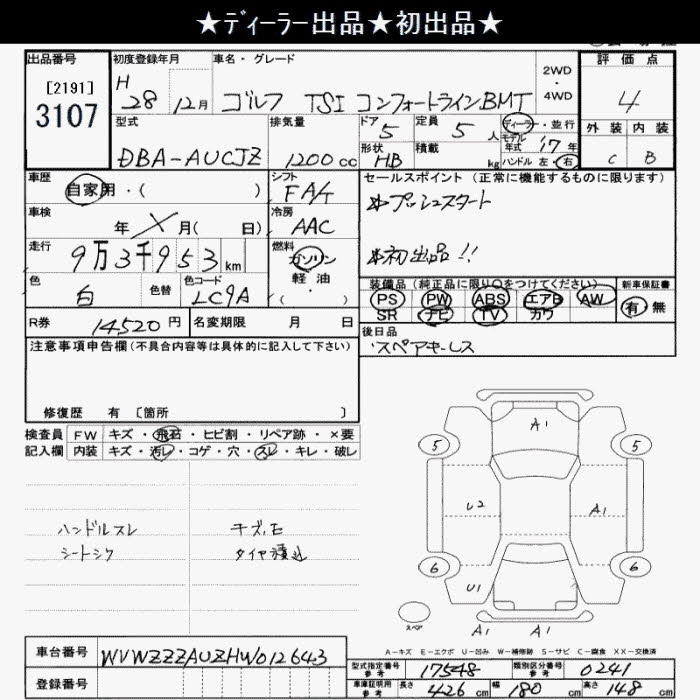 ★ディーラー出品★初出品★
出品番号
[2191]
3107
初度登録年月
H 28年 12月
車名・グレード
ゴルフ TSI コンフォートラインBMT
2WD
4WD
評価点
4
外装 内装
C B
型式
DBA-AUCJZ
排気量
1200cc
ドア
5
定員
5人
ディーラー・並行
モデル年式 '17年
形状
HB
積載
kg
ハンドル 左・右
車歴
自家用・( )
シフト
FA/T
セールスポイント(正常に機能するものに限ります)
☆プッシュスタート
☆初出品!!
車検
年 月( 日)
冷房
AAC
走行
9万3千953km
燃料
ガソリン
軽油
・( )・
色
白
色替
色コード
LC9A
装備品(純正品に限り○をつけてください)
PS PW ABS エアB AW
SR ナビ TV カワ
新車保証書
有・無
R券
14520円
名変期限 月 日
後日品
スペアキーレス
注意事項申告欄(不具合内容等は具体的に記入して下さい)
修復歴 有〔箇所 〕
検査員記入欄
FW キズ・飛石・ヒビ割・リペア跡・×要
内装 キズ・汚レ・コゲ・穴・スレ・キレ・破レ
ハンドルスレ
シートシワ
キズ,凹
タイヤ積込
A1
5 5
U2 A1
6 6
U1
スペア
A1 A1
A-キズ E-エクボ U-凹み W-補修跡 S-サビ C-腐食 XX-交換済
車台番号
WVWZZZAUZHW012643
登録番号
型式指定番号 参考
17548
類別区分番号 参考
0241
車庫証明用 参考
長さ 426cm 幅 180cm 高さ 148cm